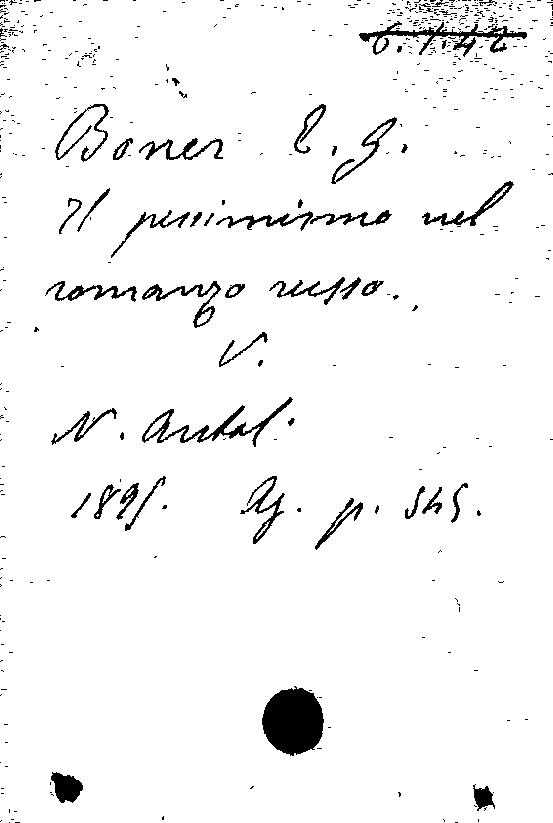 6.1.42
Boner E. G.
Il pessimismo nel
romanzo russo.
V.
N. Antol.
1895. Ag. p. 545.